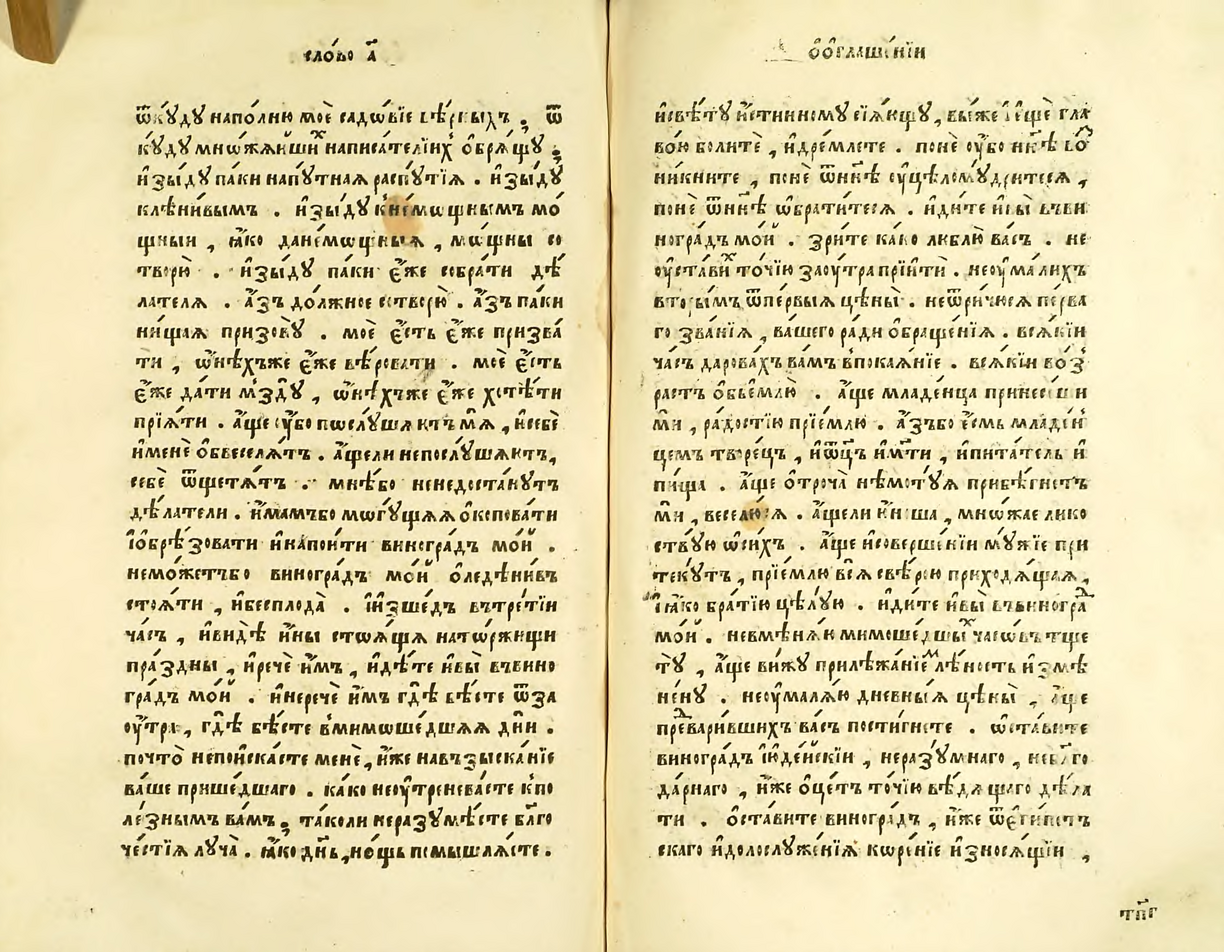 сло́во а҃
ѿкꙋ́дꙋ напо́лню моѐ садо́вїе вѣ́рныхъ , ѿ
кꙋ́дꙋ мнѡжа́йшиⷯ написа́телїиⷯ ѡ҆брѧ́щꙋ ;
и҆зы́дꙋ па́ки напꙋ́тнаѧ распꙋ́тїѧ . и҆зы́дꙋ
клѣни́вымъ . и҆зы́дꙋ кне́мѡщнымъ мо́
щныи , ꙗ҆́ко дане́мѡщныѧ , мѡ́щны со
творю̀ . и҆зы́дꙋ па́ки є҆́же собра́ти дѣ́
лателѧ . а҆́зъ до́лжное створю̀ . а҆́зъ па́ки
ни́щаѧ призовꙋ̀ . моѐ є҆́сть є҆́же призва́
ти , ѡ҆нѣ́хъже є҆́же вѣ́ровати . моѐ є҆́сть
є҆́же да́ти мздꙋ̀ , ѡ҆нѣ́хъже є҆́же хотѣ́ти
прїѧ́ти . а҆́ще ᲂу҆́бо послꙋ́шаютъ мѧ̀ , и҆себѐ
и҆менѐ ѡ҆бвеселѧ́тъ . а҆́щели непослꙋ́шаютъ,
себѐ ѿщетѧ́тъ . мнѣ́бо ненедоста́нꙋтъ
дѣ́латели . и҆́мамъбо мѡгꙋ́щаѧ ѡ҆копова́ти
і҆ѡбрѣ́зовати и҆напои́ти виногра́дъ мо́й .
немо́жетъбо виногра́дъ мо́й ѡ҆леденѣ́въ
стоѧ́ти , и҆бесплода̀ . і҆изше́дъ вътре́тїи
ча́съ , и҆ви́дѣ и҆́ны стоѧ́щѧ нато́ржищи
пра́здны , и҆речѐ и҆̀мъ , и҆дѣ́те и҆вы̀ въвино
гра́дъ мо́й . и҆неречѐ и҆̀мъ гдѣ̀ бѣ́сте ѿза
ᲂу҆́тра , гдѣ̀ бѣ́сте вмимѡше́дшаѧ дни̑ .
почто̀ непоиска́сте менѐ , и҆́же навъзыска́нїе
ва́ше прише́дшаго . ка́ко неᲂу҆́треневасте кпо
ле́знымъ ва́мъ ; та́коли неразꙋмѣ́сте бл҃го
че́стїѧ лꙋча̀ . ꙗ҆́ко дн҃ь , но́щь помышлѧ́сте .
ѡ҆ѡ҆глаше́нїи
и҆свѣ́тꙋ и҆́стинномꙋ сїѧ́ющꙋ , вы́же і҆ещѐ гла
во́ю боли́те , и҆дре́млете . понѐ ᲂу҆́бо нн҃ѣ во́
никните , понѐ ѿнн҃ѣ сꙋцѣломꙋ́дритесѧ ,
понѐ ѿнн҃ѣ ѡ҆брати́тесѧ . и҆ди́те и҆вы̀ въви
ногра́дъ мо́й . зри́те ка́ко люблю̀ ва́съ . не
ᲂу҆ста́виⷯ то́чїю заᲂу҆́тра прїи́ти . неᲂу҆ма́лихъ
вторы́мъ ѿпе́рвыѧ цѣны̀ . неѿри́нꙋсѧ пе́рва
го зва́нїѧ , ва́шего ра́ди ѡ҆браще́нїѧ . всѧ́кїи
ча́съ дарова́хъ ва́мъ впокаѧ́нїе . всѧ́кїи во́з
растъ ѡ҆бье́млю . а҆́ще младе́нца принесе́ши
ми , ра́достїю прїе́млю . а҆́зъбо є҆́смь младе́н
цемъ творе́цъ , и҆ѡ҃цъ и҆мт҃и , и҆пита́тель и҆
пи́ща . а҆́ще ѻ҆троча̀ нѣмотꙋ́ѧ прибѣ́гнетъ
ми , веселю́сѧ . а҆́щели ю҆́ноша , мнѡжае лико
ствꙋ́ю ѡ҆си́хъ . а҆́ще и҆соверше́нїи мꙋ́жїе при
текꙋ́тъ , прїе́млю всѧ̀ свѣ́рою приходѧ́щаѧ ,
і҆ꙗ҆́ко бра́тїю цѣлꙋ́ю . и҆ди́те и҆вы̀ въвиногра́ⷣ
мо́й . невмѣнѧ́ю мимоше́дшыⷯ часѡ́въ тще
тꙋ̀ , а҆́ще ви́жꙋ прилѣжа́нїеⷨ лѣ́ность и҆змѣ
ненꙋ̀ . неᲂу҆малѧ́ю дне́вныѧ цѣны̀ , а҆́ще
превари́вшихъ ва́съ пости́гнете . ѡ҆ста́вите
виногра́дъ і҆юде́йскїи , неразꙋ́мнаго , небл҃го
да́рнаго , и҆́же ѻ҆́цетъ то́чїю вѣ́дѧщаго дѣ́ла
ти . ѻ҆ста́вите виногра́дъ , и҆́же ѿєги́петъ
скаго и҆долослꙋже́нїѧ ко́ренїе и҆зносѧ́щїи ,
тп҃г